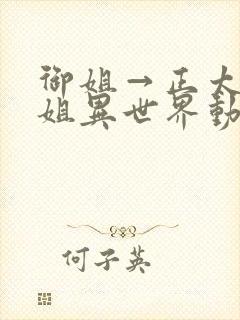 御姐→正太
姐異世界動
何子英